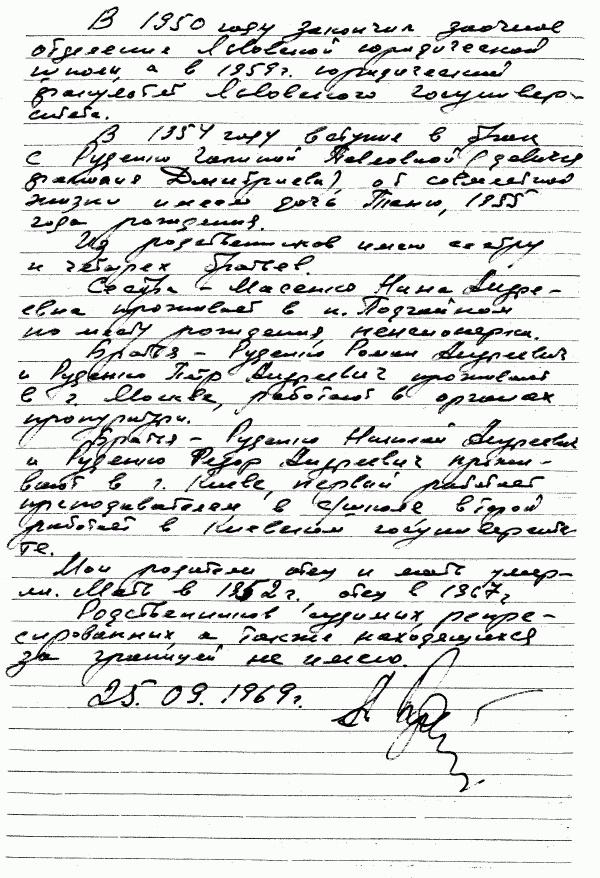 В 1950 году закончил заочное
отделение Львовской юридической
школы, а в 1959 г. юридический
факультет Львовского госунивер-
ситета.
В 1954 году вступил в брак
с Руденко Галиной Павловной (девичья
фамилия Дмитриева), от совместной
жизни имеем дочь Таню, 1955
года рождения.
Из родственников имею сестру
и четырех братьев.
Сестра – Масенко Нина Андре-
евна проживает в н. Подгайном
по месту рождения, пенсионерка.
Братья – Руденко Роман Андреевич
и Руденко Пётр Андреевич проживают
в г. Москва, работают в органах
прокуратуры.
Братья – Руденко Николай Андреевич
и Руденко Федор Андреевич прожи-
вают в г. Киеве, первый работает
преподавателем в с/школе второй
работает в Киевском госуниверсите
те.
Мои родители отец и мать умер-
ли. Мать в 1952 г. отец в 1967 г
Родственников судимых репре-
сированных а также находящихся
за границей не имею.
25.09.1969 г.